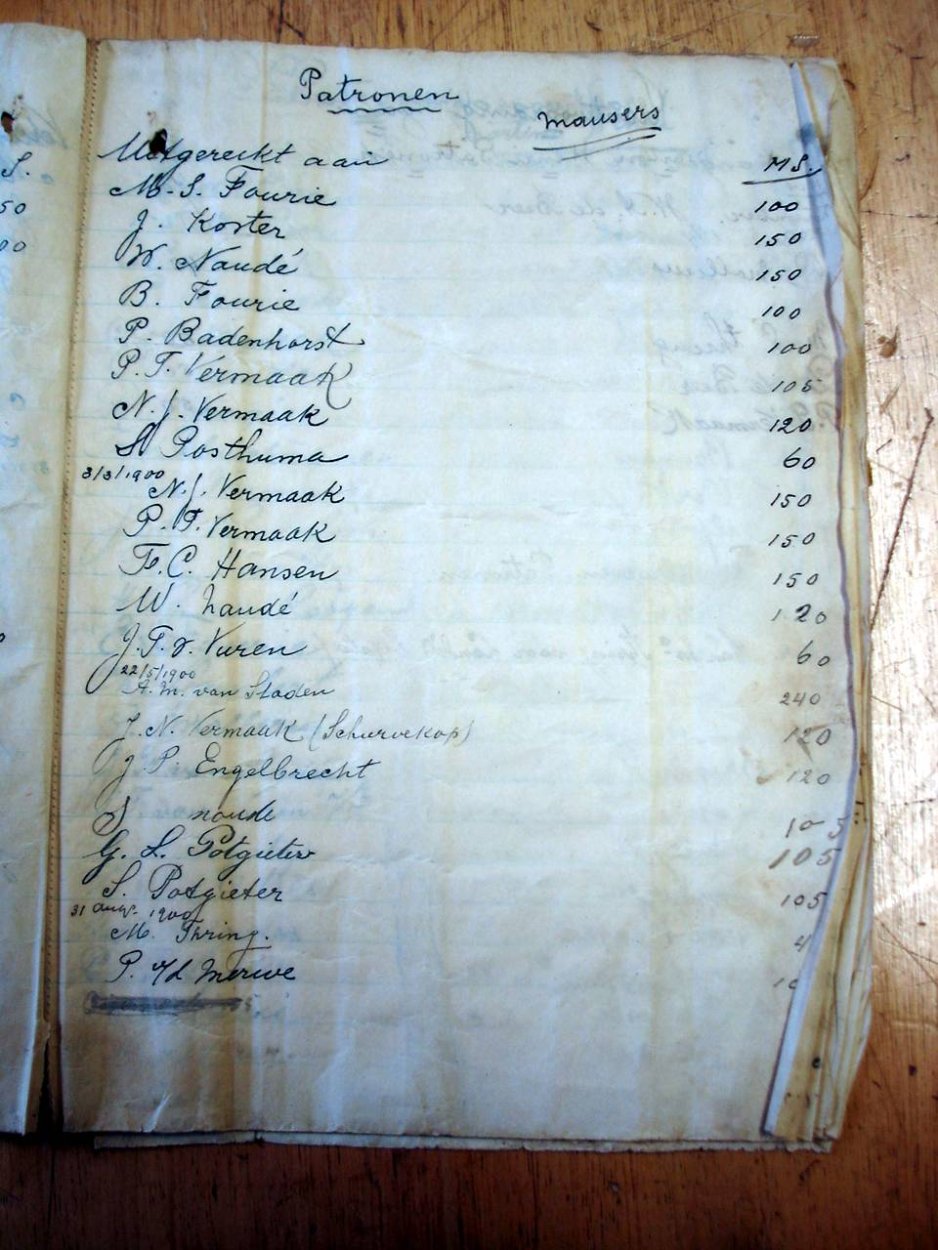 Patronen
Mausers
Uitgereikt aan M.S.
M. S. Fourie 100
J. Koster 150
W. Naudé 150
B. Fourie 100
P. Badenhorst 100
P. T. Vermaak 105
N. J. Vermaak 120
Posthuma 60
3/3/1900
N. J. Vermaak 150
P. T. Vermaak 150
F. C. Hansen 150
W. Naudé 120
J. T. v. Vuren 60
22/5/1900
A. M. van Staden 240
J. N. Vermaak (Schurvekop) 120
J. P. Engelbrecht 120
S naude 105
G. L. Potgieter 105
S. Potgieter 105
31 Aug. 1900
M. Thring. 4
P. v/d Merwe 10